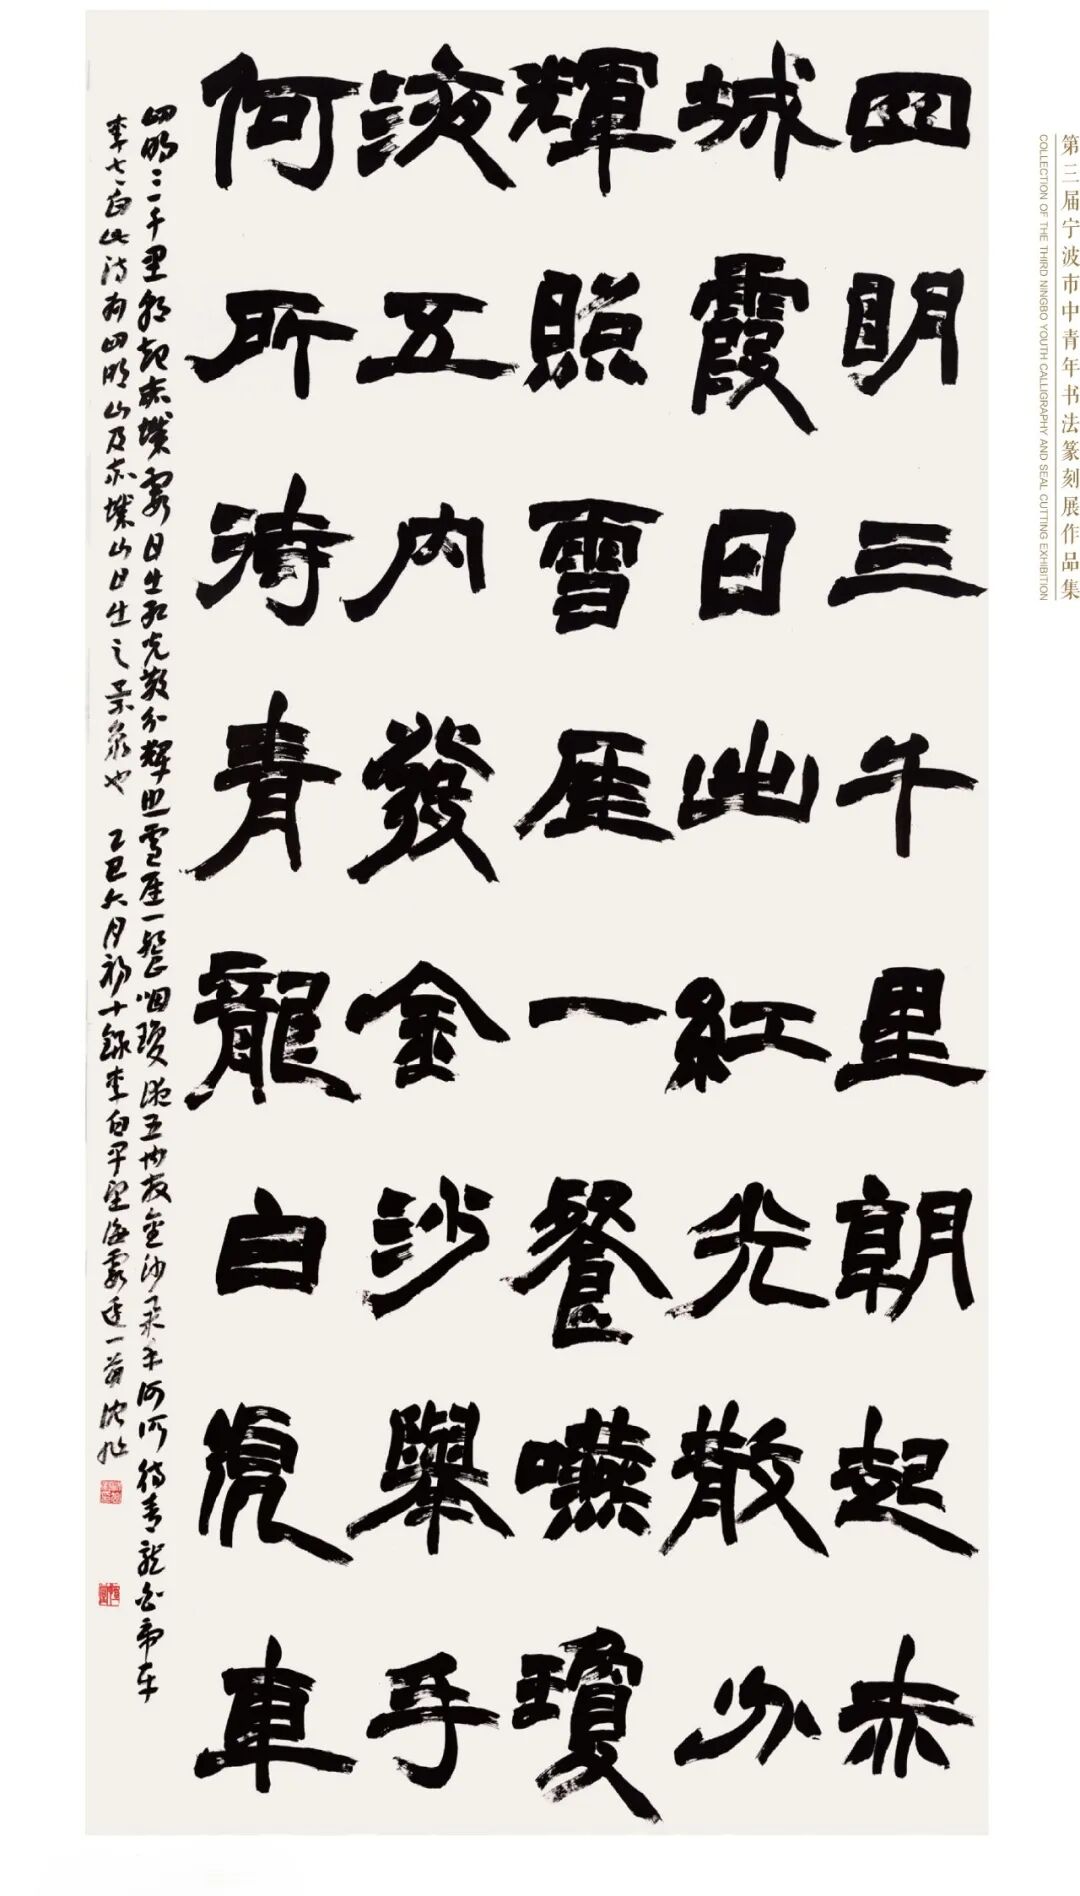 四明三千里朝起赤
城霞日出紅光散分
輝照雪崖一餐嚥瓊
液五内發金沙舉手
何所待青龍白虎車
四明三千里朝起赤城霞日出紅光散分輝照雪崖一餐咽瓊液五内發金沙舉手何所待青龍白虎車
李太白此詩有四明山及赤城山日出之景象也 乙巳六月初十録李白早望海霞邊一首
第三届宁波市中青年书法篆刻展作品集
COLLECTION OF THE THIRD NINGBO YOUTH CALLIGRAPHY AND SEAL CUTTING EXHIBITION